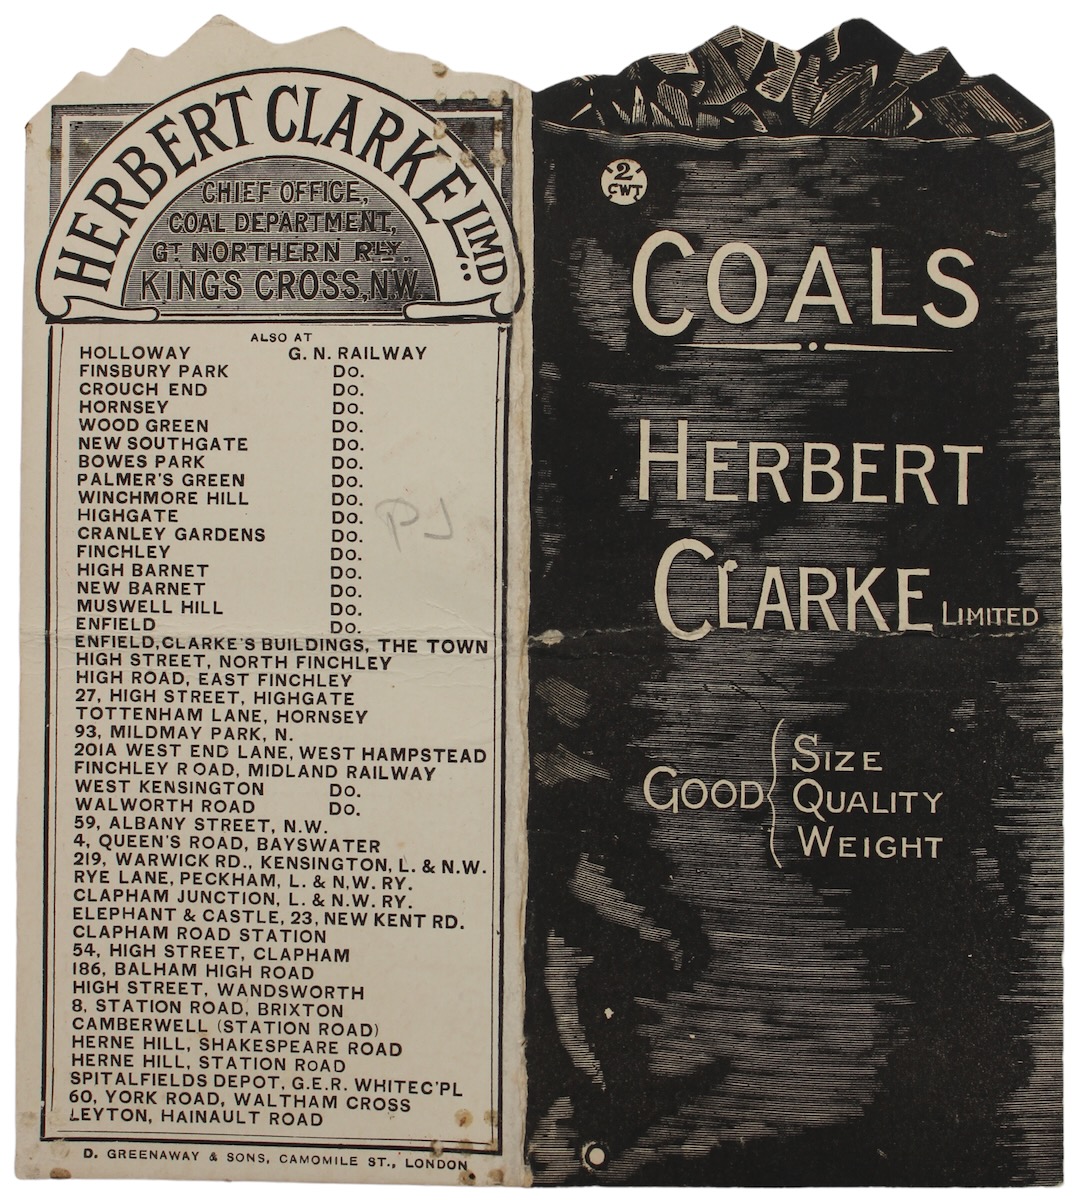 HERBERT CLARKE LIMD
CHIEF OFFICE,
COAL DEPARTMENT,
GT NORTHERN RLY.
KINGS CROSS, N.W.
ALSO AT
HOLLOWAY G. N. RAILWAY
FINSBURY PARK Do.
CROUCH END Do.
HORNSEY Do.
WOOD GREEN Do.
NEW SOUTHGATE Do.
BOWES PARK Do.
PALMER'S GREEN Do.
WINCHMORE HILL Do.
HIGHGATE Do.
CRANLEY GARDENS Do.
FINCHLEY Do.
HIGH BARNET Do.
NEW BARNET Do.
MUSWELL HILL Do.
ENFIELD Do.
ENFIELD, CLARKE'S BUILDINGS, THE TOWN
HIGH STREET, NORTH FINCHLEY
HIGH ROAD, EAST FINCHLEY
27, HIGH STREET, HIGHGATE
TOTTENHAM LANE, HORNSEY
93, MILDMAY PARK, N.
201A WEST END LANE, WEST HAMPSTEAD
FINCHLEY ROAD, MIDLAND RAILWAY
WEST KENSINGTON Do.
WALWORTH ROAD Do.
59, ALBANY STREET, N.W.
4, QUEEN'S ROAD, BAYSWATER
219, WARWICK RD., KENSINGTON, L. & N.W.
RYE LANE, PECKHAM, L. & N.W. RY.
CLAPHAM JUNCTION, L. & N.W. RY.
ELEPHANT & CASTLE, 23, NEW KENT RD.
CLAPHAM ROAD STATION
54, HIGH STREET, CLAPHAM
186, BALHAM HIGH ROAD
HIGH STREET, WANDSWORTH
8, STATION ROAD, BRIXTON
CAMBERWELL (STATION ROAD)
HERNE HILL, SHAKESPEARE ROAD
HERNE HILL, STATION ROAD
SPITALFIELDS DEPOT, G.E.R. WHITEC'PL
60, YORK ROAD, WALTHAM CROSS
LEYTON, HAINAULT ROAD
D. GREENAWAY & SONS, CAMOMILE ST., LONDON
2
CWT
COALS
HERBERT
CLARKE LIMITED
GOOD
SIZE
QUALITY
WEIGHT